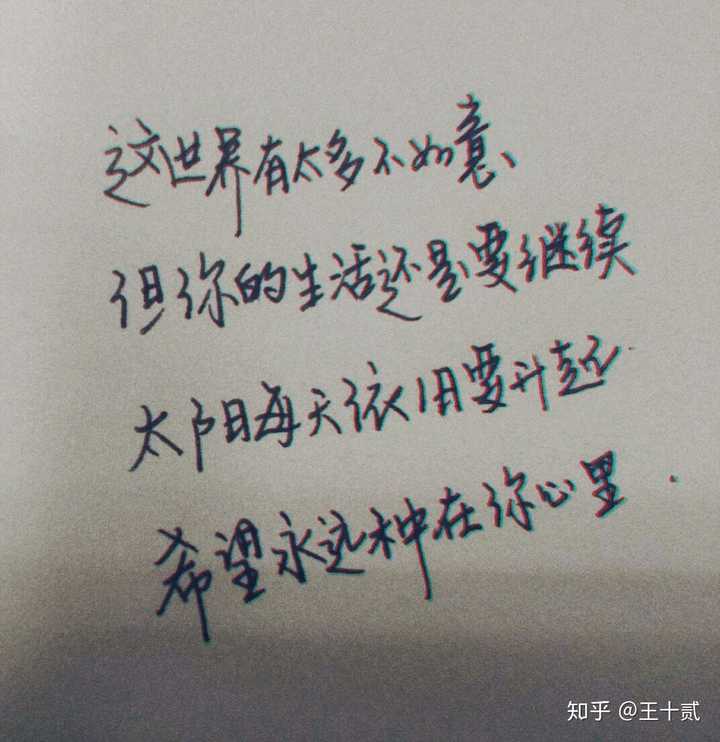 这世界有太多不如意、
但你的生活还是要继续
太阳每天依旧要升起
希望永远种在你心里.
知乎 @王十贰